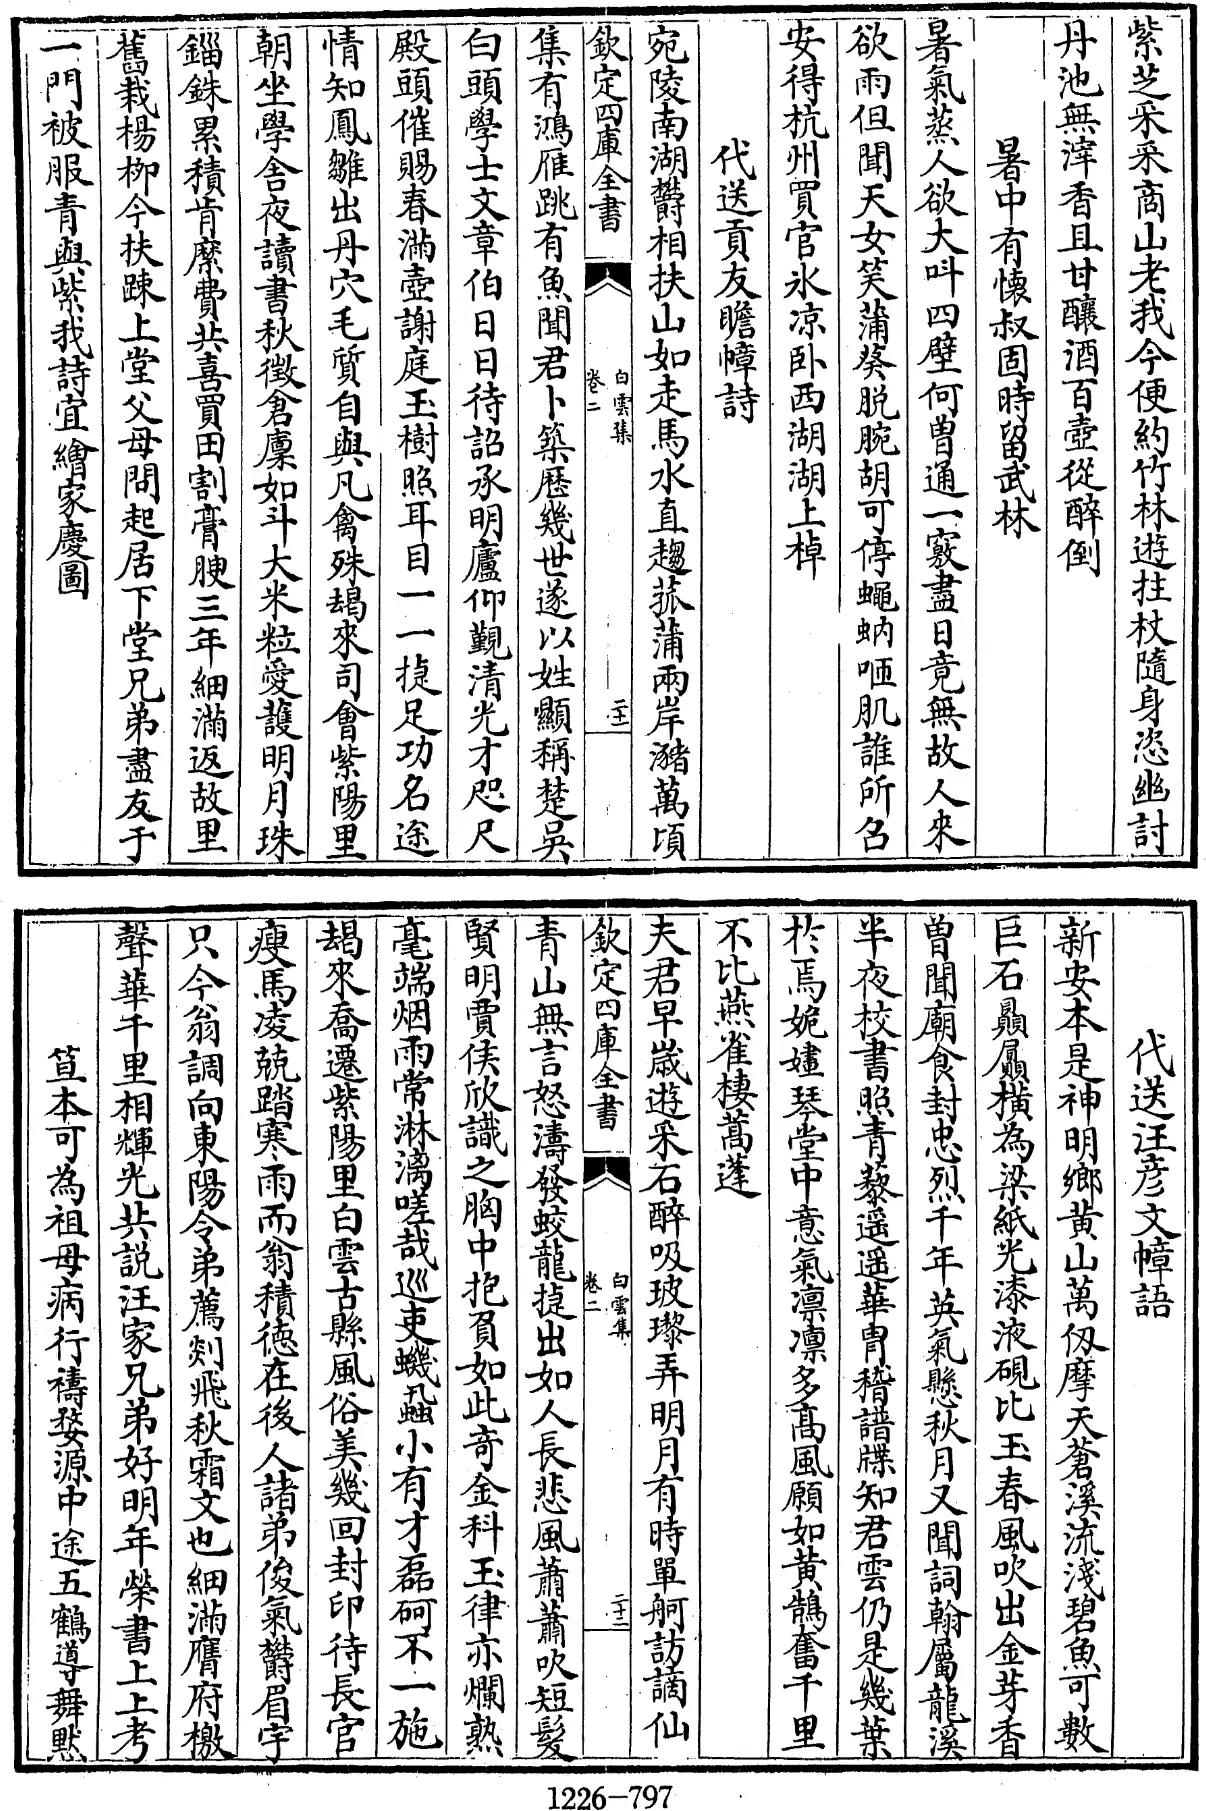 紫芝采采商山老我今便約竹林遊拄杖隨身恣幽討
丹池無滓香且甘釀酒百壺從醉倒
暑中有懷叔固時留武林
暑氣蒸人欲大叫四壁何曾通一竅盡日竟無故人來
欲雨但聞天女笑蒲葵脱腕胡可停蠅蚋咂肌誰所召
安得杭州買官氷凉卧西湖湖上棹
代送貢友瞻幛詩
宛陵南湖欝相扶山如走馬水直趨菰蒲兩岸瀦萬頃
欽定四庫全書
白雲集
卷二
二十一
集有鴻雁跳有魚聞君卜築歴幾世遂以姓顯稱楚吳
白頭學士文章伯日日待詔承明廬仰觀清光才咫尺
殿頭催賜春滿壺謝庭玉樹照耳目一一捷足功名途
情知鳳雛出丹穴毛質自與凡禽殊朅來司會紫陽里
朝坐學舎夜讀書秋徴倉廩如斗大米粒愛護明月珠
錙銖累積肯縻費共喜買田割膏腴三年細滿返故里
舊栽楊柳今扶踈上堂父母問起居下堂兄弟盡友于
一門被服青與紫我詩宜繪家慶圖
代送汪彦文幛語
新安本是神明鄉黄山萬仭摩天蒼溪流淺碧魚可數
巨石贔屭横為梁紙光漆液硯比玉春風吹出金芽香
曽聞廟食封忠烈千年英氣懸秋月又聞詞翰屬龍溪
半夜校書照青藜遥遥華胄稽譜牒知君雲仍是幾葉
於焉婏嫿琴堂中意氣凛凛多髙風願如黄鵠奮千里
不比燕雀棲蒿蓬
夫君早歳遊采石醉吸玻瓈弄明月有時單舸訪謫仙
欽定四庫全書
白雲集
卷二
二十二
青山無言怒濤發蛟龍捷出如人長悲風蕭蕭吹短髮
賢明賈侯欣識之胸中抱負如此奇金科玉律亦爛熟
毫端烟雨常淋漓嗟哉巡吏蟣蝨小有才磊砢不一施
朅來喬遷紫陽里白雲古縣風俗美幾回封印待長官
瘦馬凌兢踏寒雨而翁積徳在後人諸弟俊氣欝眉宇
只今翁調向東陽令弟薦剡飛秋霜文也細滿膺府檄
聲華千里相輝光共説汪家兄弟好明年榮書上上考
笪本可為祖母病行禱婺源中途五鶴導舞黙
1226-797